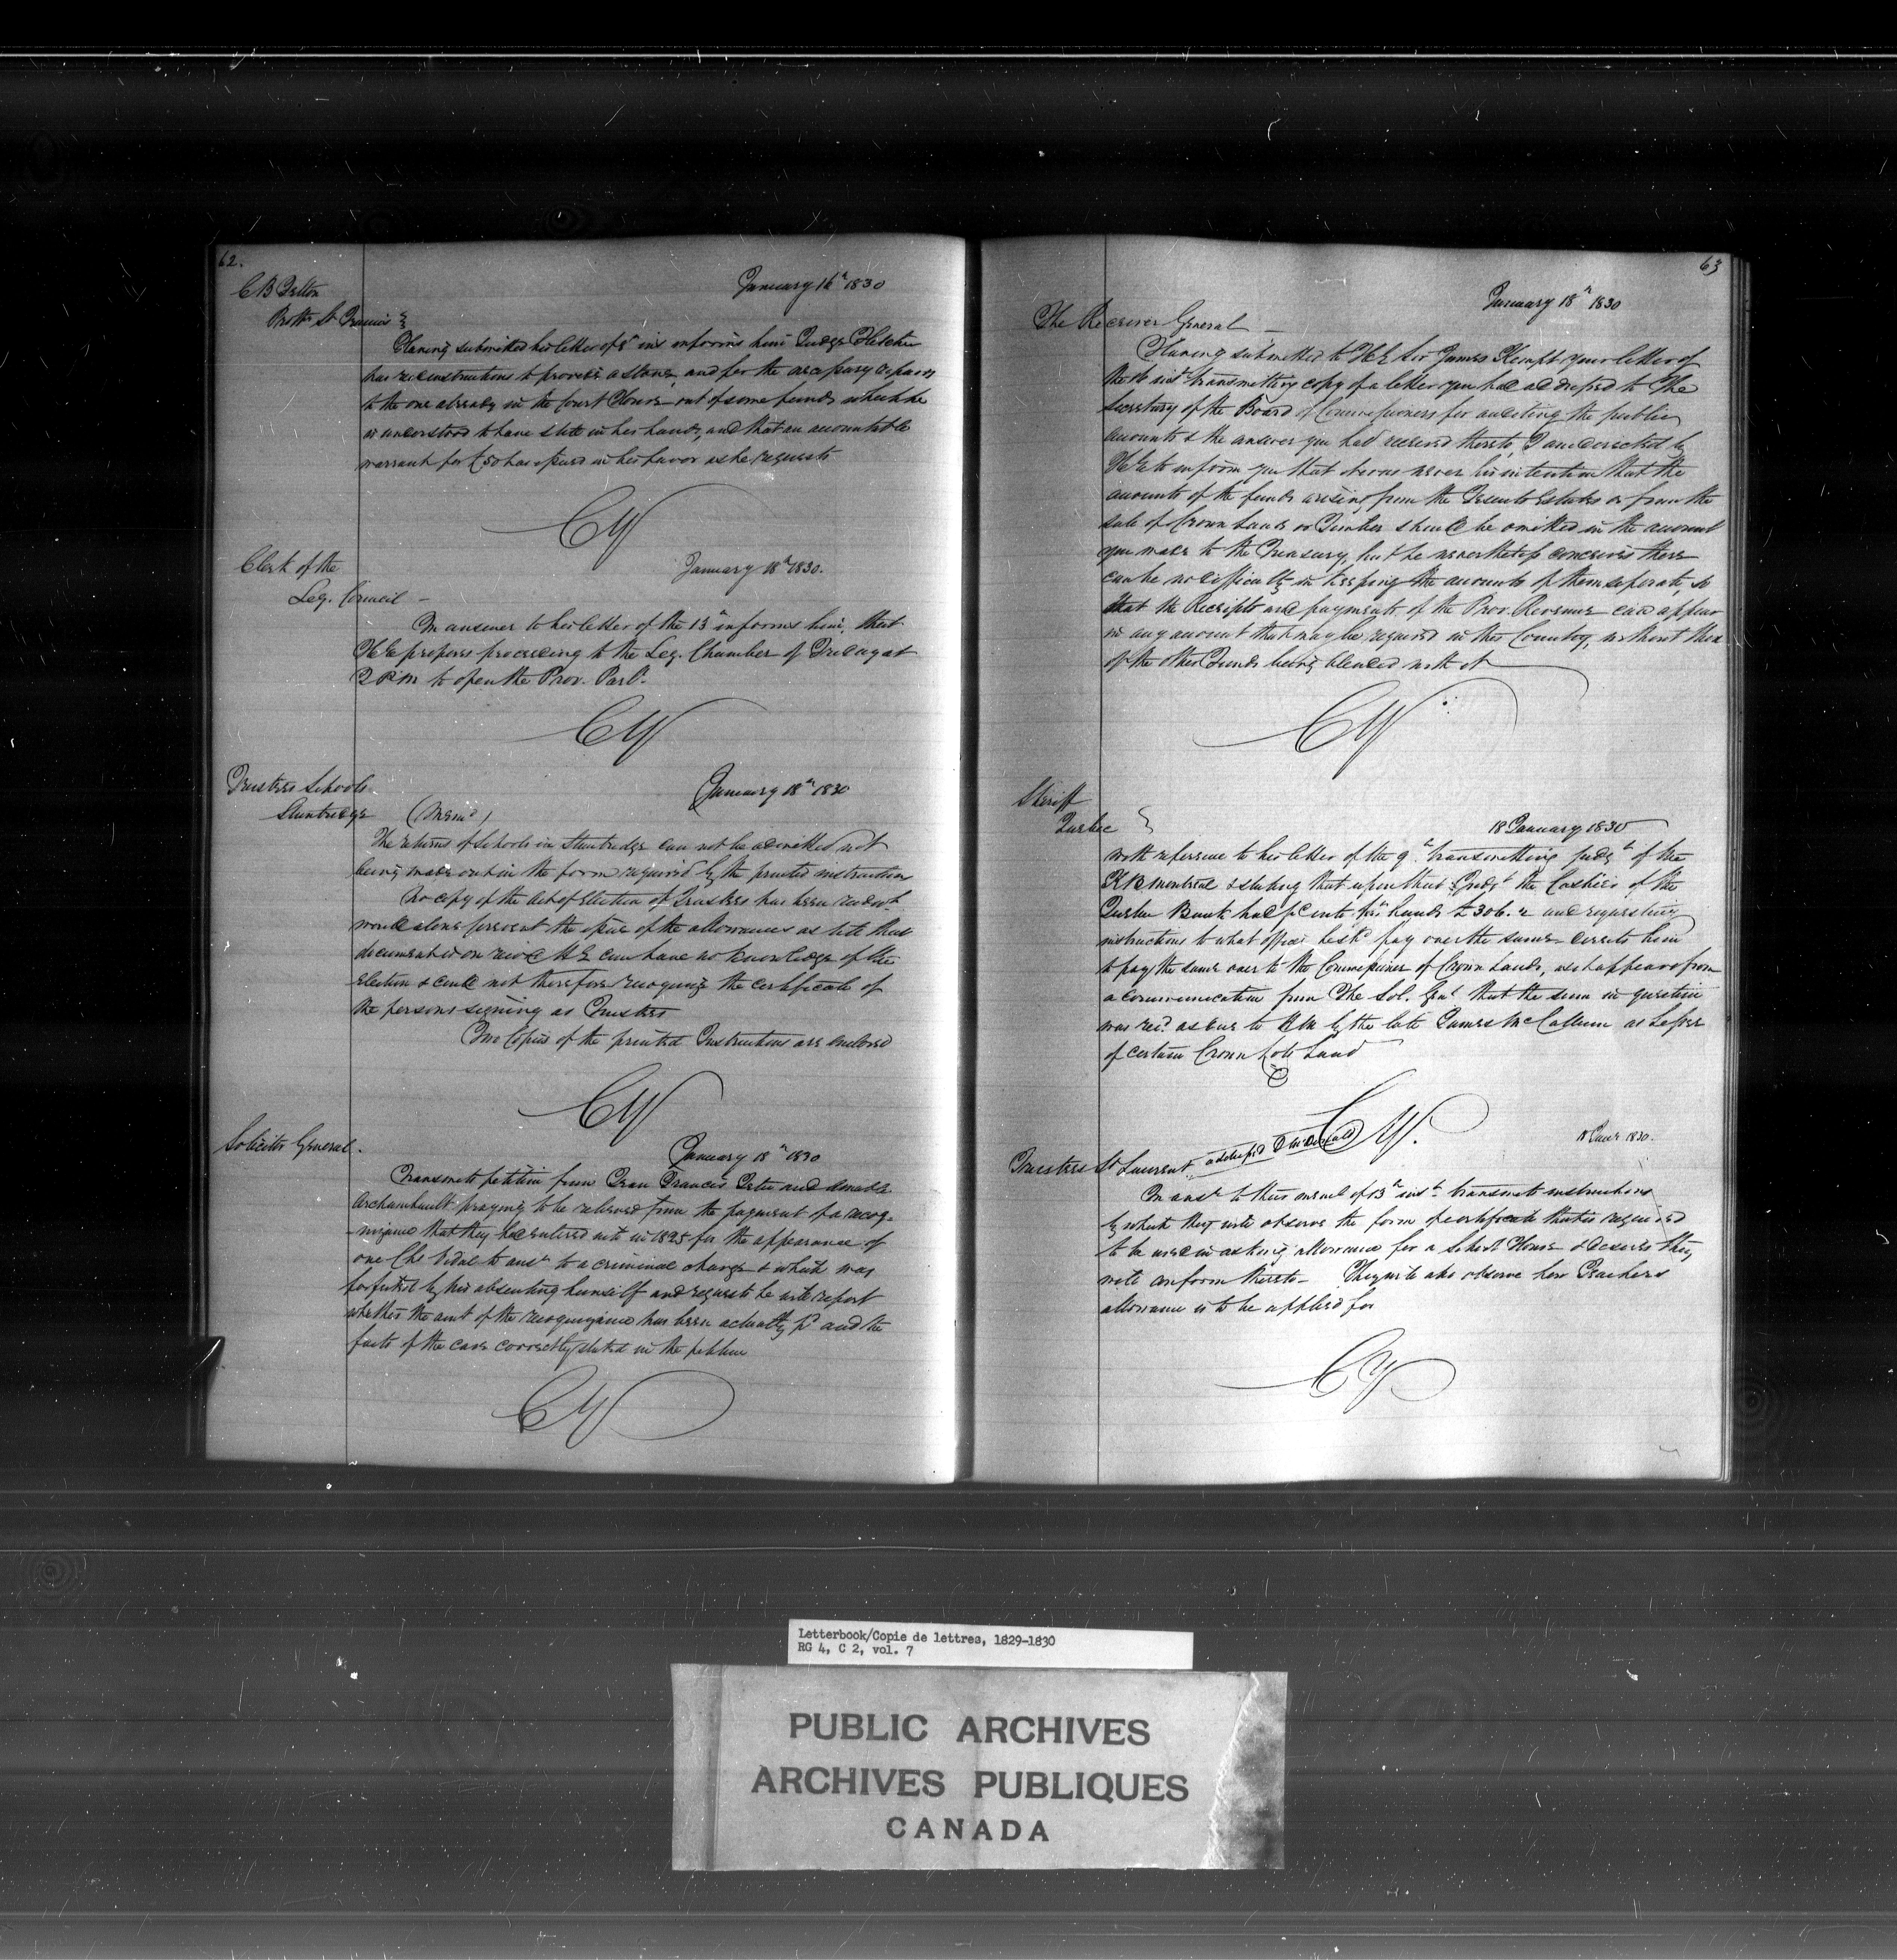 62.
January 16th 1830
C B Felton
Proth. St Francis
Having submitted his letter of 8th ins informs him Judge Fletcher
has rec instructions to provide a stove, and for the necessary repairs
to the one already in the Court House out of some funds which he
is understood to have still in his hands, and that an accountable
warrant for £50 has issued in his favor as he requests
CY
January 18th 1830.
Clerk of the
Leg. Council -
In answer to his letter of the 13th informs him, that
HE proposes proceeding to the Leg. Chamber of Friday at
2 PM to open the Prov. Parlt.
CY
January 18th 1830
Trustees Schools
Stanbridge (Memo)
The returns of Schools in Stanbridge can not be admitted not
being made out in the form required by the printed instruction
No copy of the Act of Election of Trustees has been
would alone prevent the issue of the allowances as till that
document is on rec'd HE can have no knowledge of the
Election & could not therefore recognize the certificate of
the persons signing as Trustees
Two Copies of the printed Instructions are enclosed
CY
Solicitor General.
January 18th 1830
Transmits petition from Jean Francois and Amable
Archambault praying to be relieved from the payment of a recog-
-nizance that they had entered into in 1825 for the appearance of
one Chs Vidal to ansr to a criminal charge & which was
forfeited by his absenting himself and requests he will report
whether the amt of the recognizance has been actually pd and the
facts of the case correctly stated in the petition
CY
63
January 18th 1830
The Receiver General -
Having submitted to HE Sir James Kempt your letter of
the 16 inst transmitting copy of a letter you had addressed to The
Secretary of the Board of Commissioners for auditing the public
accounts & the answer you had received thereto, I am directed by
HE to inform you that it was never his intention that the
amounts of the funds arising from the Jesuits Estates or from the
sale of Crown Lands or Timber should be omitted in the account
you make to the Treasury, but he nevertheless conceives there
can be no difficulty in keeping the accounts of them separate, so
that the Receipts and payments of the Prov. Revenue can appear
in any account that may be required in this Country, without those
of the other Funds being blended with it
CY
Sheriff
Quebec
18 January 1830
With reference to his letter of the 9th transmitting judgt of the
KB Montreal & stating that upon that Judgt the Cashier of the
Quebec Bank had pd into his hands £306. and requesting
instructions to what officer he shd pay over the same directs him
to pay the same over to the Commissioner of Crown Lands, as it appears from
a communication from The Sol. Genl that the sum in question
was recd as due to HM by the late James McCallum as Lessee
of certain Crown Lots Land
CY.
18 Jany 1830.
Trustees St Laurent addressed D McDonald
In ansr to their meml of 13th inst transmits instructions
by which they will observe the form of certificate that is required
to be used in asking allowance for a School House & desires they
will conform thereto - They will also observe how Teachers
allowance is to be applied for
CY
Letterbook/Copie de lettres, 1829-1830
RG 4, C 2, vol. 7
PUBLIC ARCHIVES
ARCHIVES PUBLIQUES
CANADA